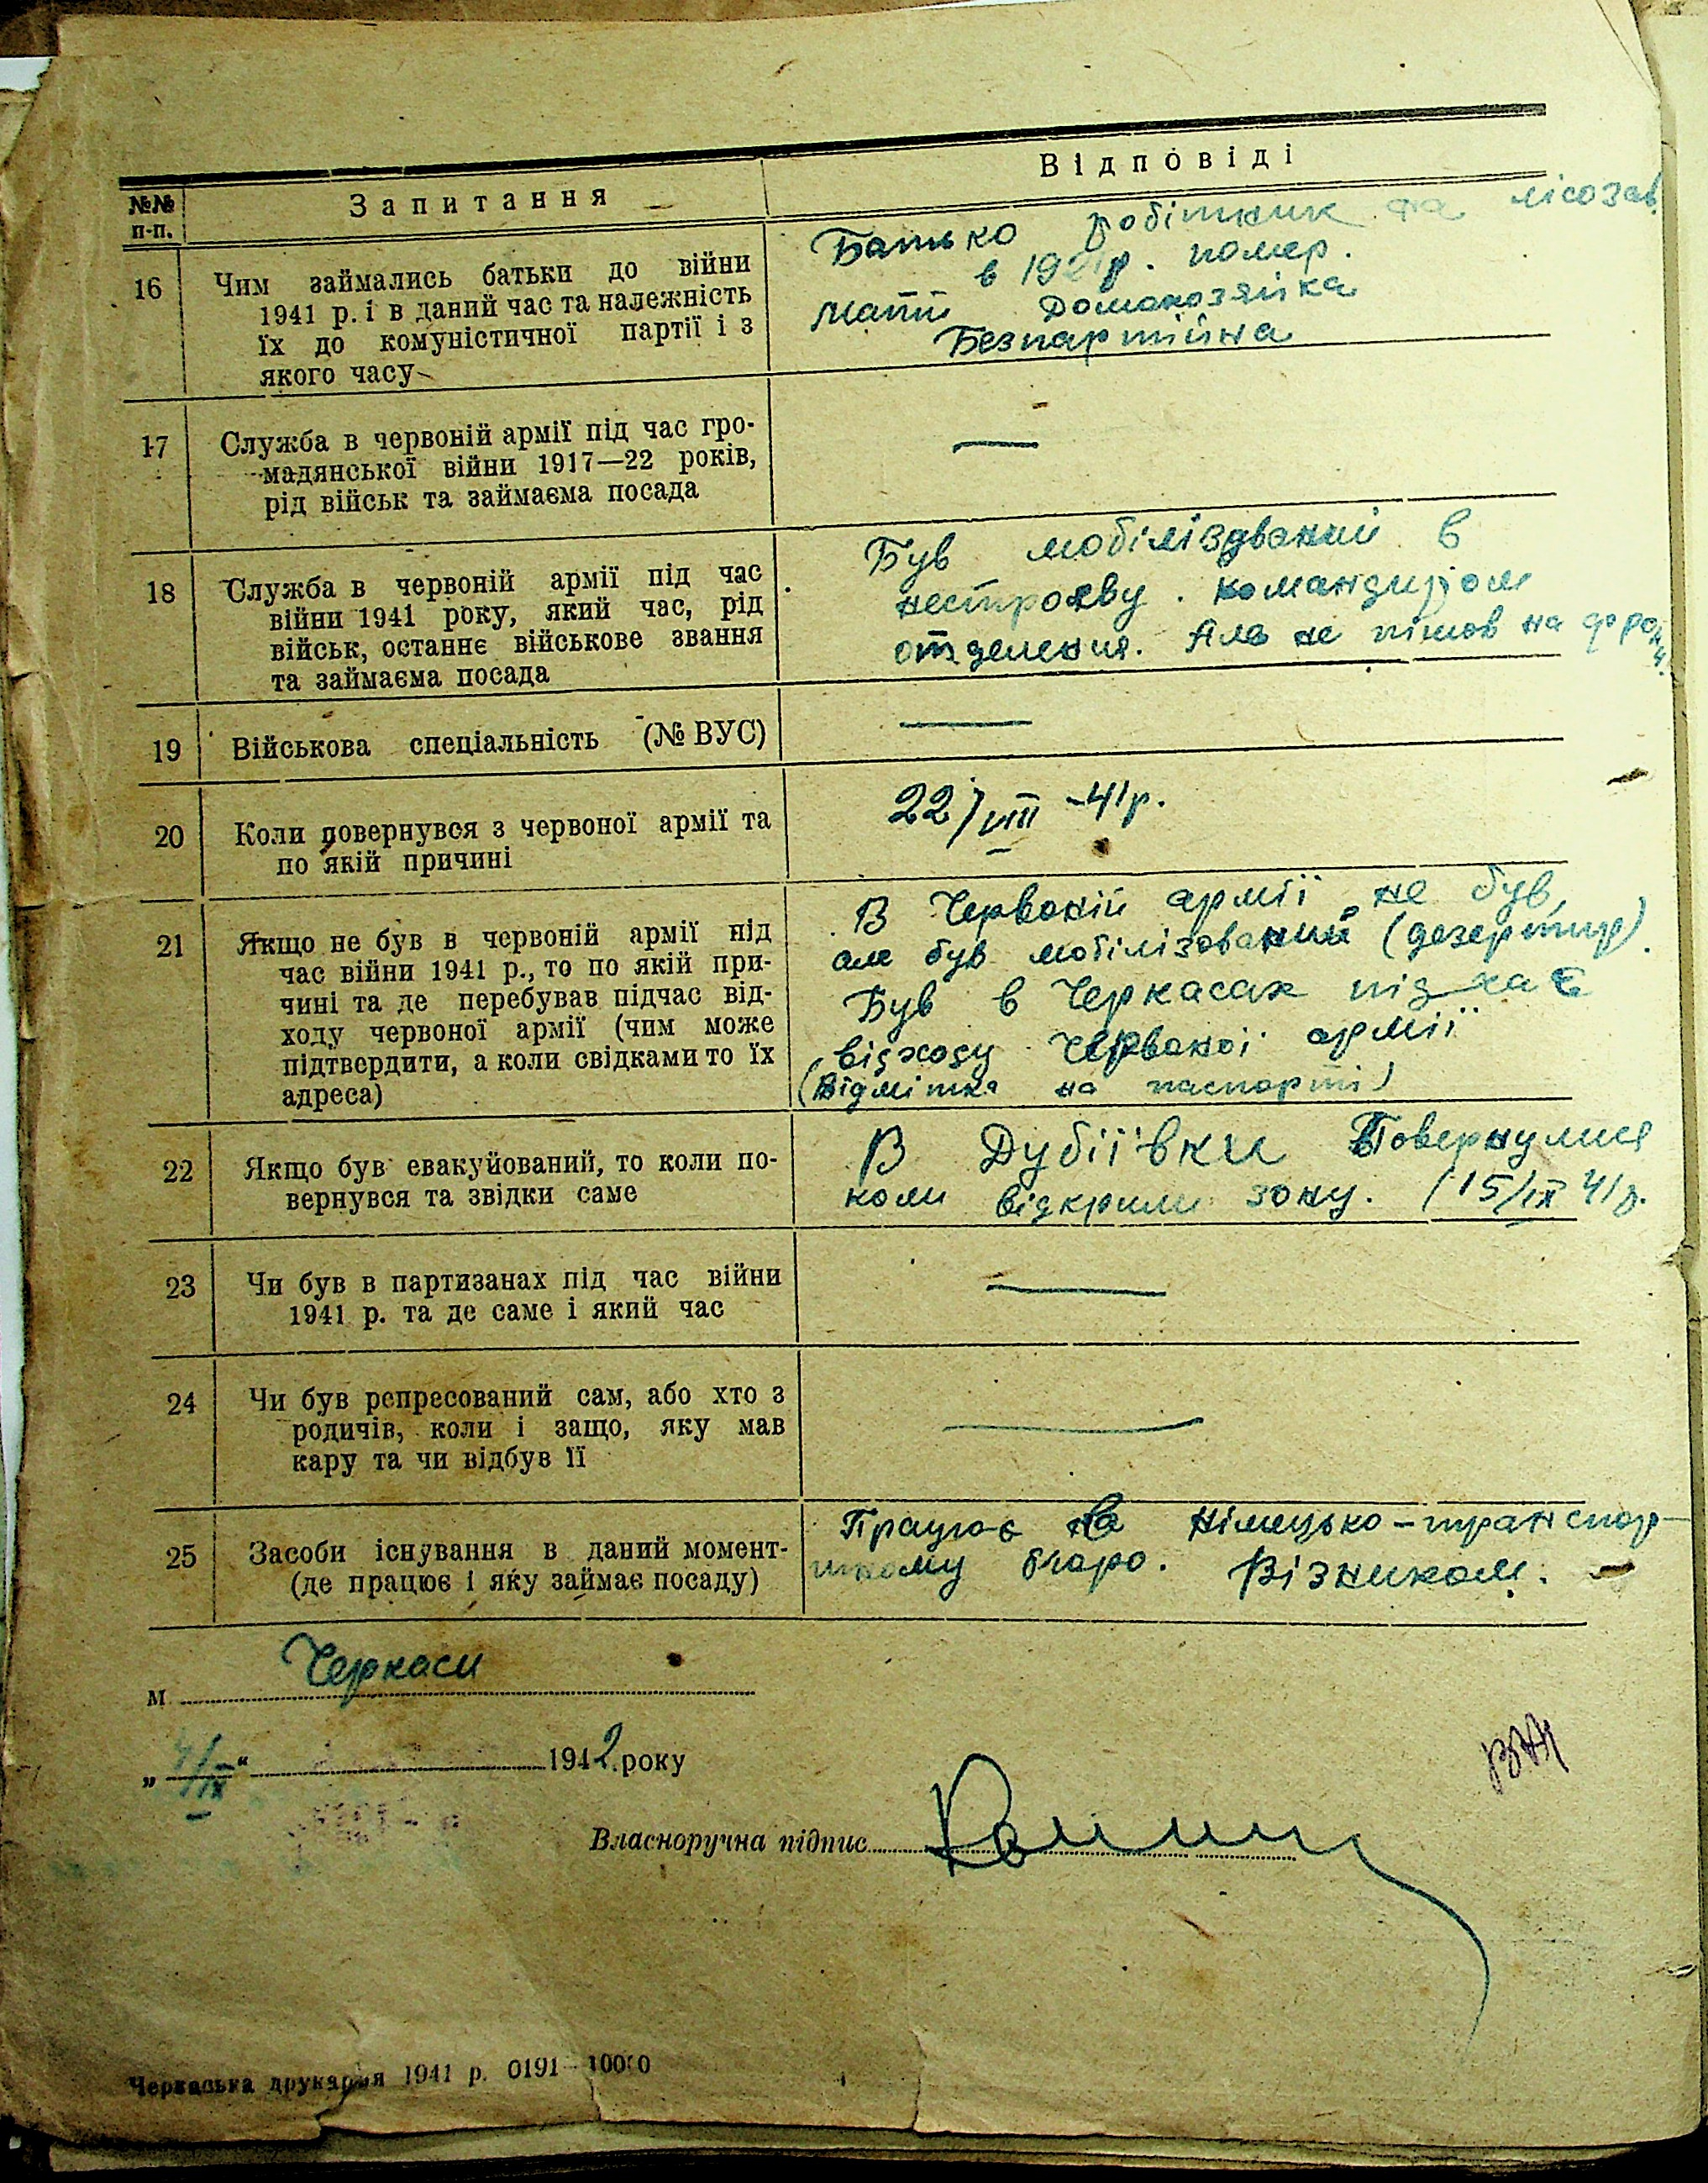 №№ п-п.
Запитання
Відповіді
16
Чим займались батьки до війни
1941 р. і в даний час та належність
їх до комуністичної партії і з
якого часу
Батько робітник на лісозав.
в р. помер.
Мати Домохозяйка
Безпартійна
17
Служба в червоній армії під час гро-
мадянської війни 1917—22 років,
рід військ та займаєма посада
—
18
Служба в червоній армії під час
війни 1941 року, який час, рід
військ, останнє військове звання
та займаєма посада
Був мобілізований в
нестроєву. командиром
отделения. Але не пішов на фронт.
19
Військова спеціальність (№ ВУС)
—
20
Коли повернувся з червоної армії та
по якій причині
22/VIII -41р.
21
Якщо не був в червоній армії під
час війни 1941 р., то по якій при-
чині та де перебував підчас від-
ходу червоної армії (чим може
підтвердити, а коли свідками то їх
адреса)
В Червоній армії не був,
але був мобілізований (дезертир).
Був в Черкасах під час
відходу Червоної армії
(Відмітка на паспорті)
22
Якщо був евакуйований, то коли по-
вернувся та звідки саме
В Дубіївки Повернулися
коли відкрили зону. (15/IX 41р.
23
Чи був в партизанах під час війни
1941 р. та де саме і який час
—
24
Чи був репресований сам, або хто з
родичів, коли і защо, яку мав
кару та чи відбув її
—
25
Засоби існування в даний момент-
(де працює і яку займає посаду)
Працює на німецько-транспор-
тному бюро. Візником.
м Черкаси
„ /IX “ 1942 року
Власноручна підпис
Черкаська друкарня 1941 р. 0191